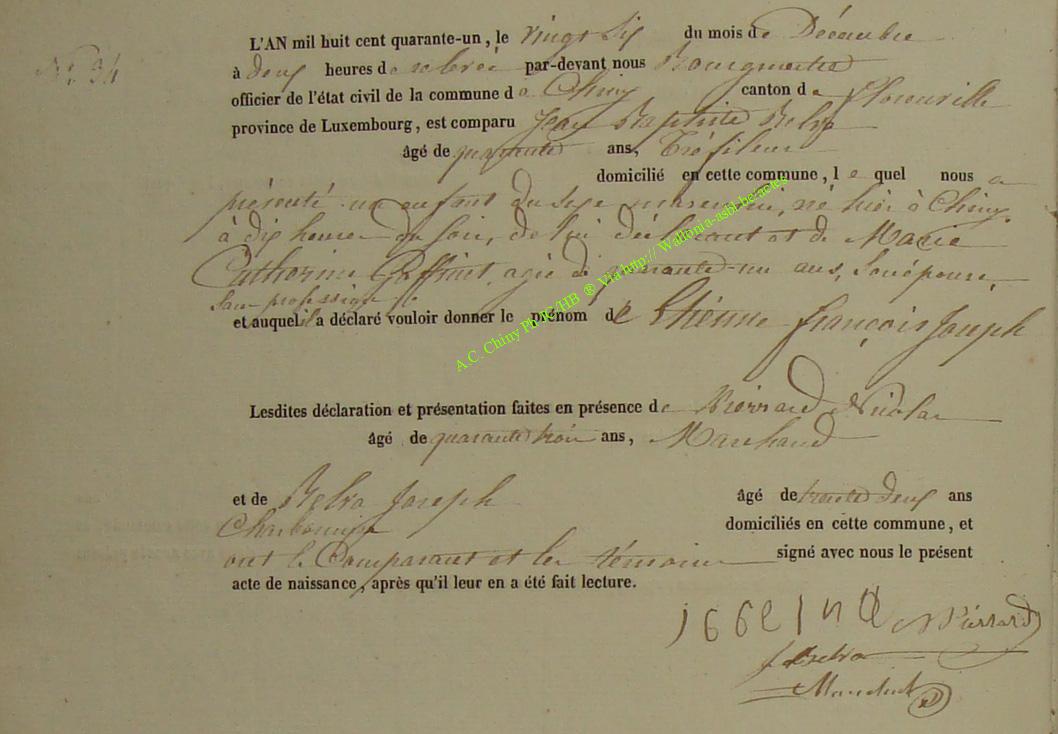 N° 34
L'AN mil huit cent quarante-un, le vingt Six du mois de Décembre
à deux heures de relevée par-devant nous Bourgmestre
officier de l'état civil de la commune de Chiny canton de florenville
province de Luxembourg, est comparu Jean Baptiste
âgé de quarante ans, Tréfileur
domicilié en cette commune, le quel nous a
présenté un enfant du sexe masculin, né hier à Chiny,
à dix heures du soir, de lui déclarant et de Marie
Catherine Goffinet, agée de quarante-un ans, son épouse,
sans profession
et auquel il a déclaré vouloir donner le prénom de Etienne françois Joseph
Lesdites déclaration et présentation faites en présence de Pierrard Nicolas
âgé de quarante trois ans, Marchand
et de Joseph âgé de trente deux ans
Charbonnier domiciliés en cette commune, et
ont le Comparant et les témoins signé avec nous le présent
acte de naissance, après qu'il leur en a été fait lecture.
N Pierrard
A.C. Chiny ® Via http:// Wallonia-asbl-be/actes